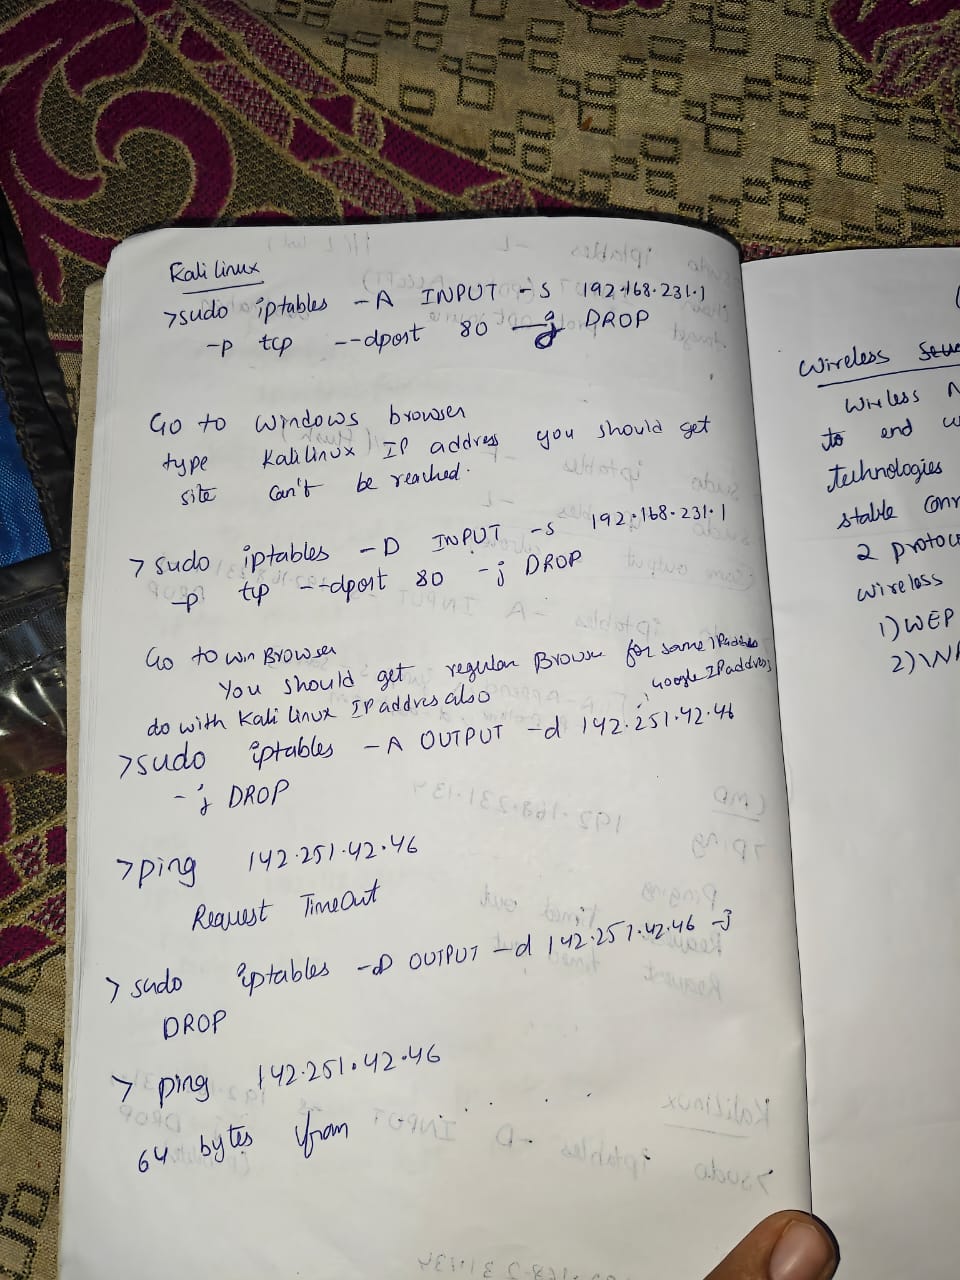 Kali linux
>sudo iptables -A INPUT -s 192.168.231.1
-p tcp --dport 80 -j DROP
Go to windows browser
type Kali linux IP address you should get
site can't be reached.
> sudo iptables -D INPUT -s 192.168.231.1
-p tcp --dport 80 -j DROP
Go to win Browser
You should get regular Browse for same IP address
do with Kali linux IP addres also
Google IP address
>sudo iptables -A OUTPUT -d 142.251.42.46
-j DROP
>ping 142.251.42.46
Request TimeOut
> sudo iptables -D OUTPUT -d 142.251.42.46 -j
DROP
> ping 142.251.42.46
64 bytes from . . . .
Wireless
Wireless
to end
technologies
stable
2
wireless
1) WEP
2)